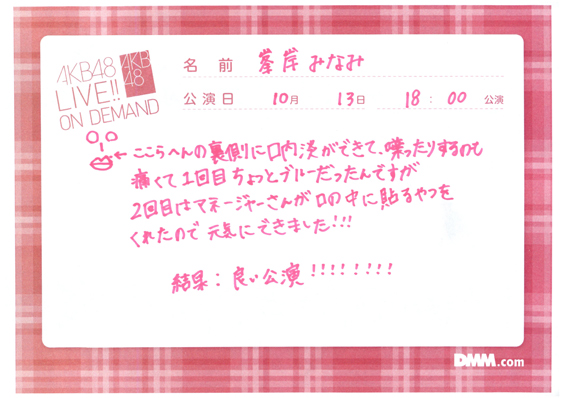 AKB48
LIVE!!
ON DEMAND
AKB
48
名前 峯岸みなみ
公演日 10月 13日 18:00 公演
←ここらへんの裏側に口内炎ができて、喋ったりするのも
痛くて1回目ちょっとブルーだったんですが
2回目はマネージャーさんが口の中に貼るやつを
くれたので元気にできました!!!
結果：良い公演!!!!!!!!
DMM.com